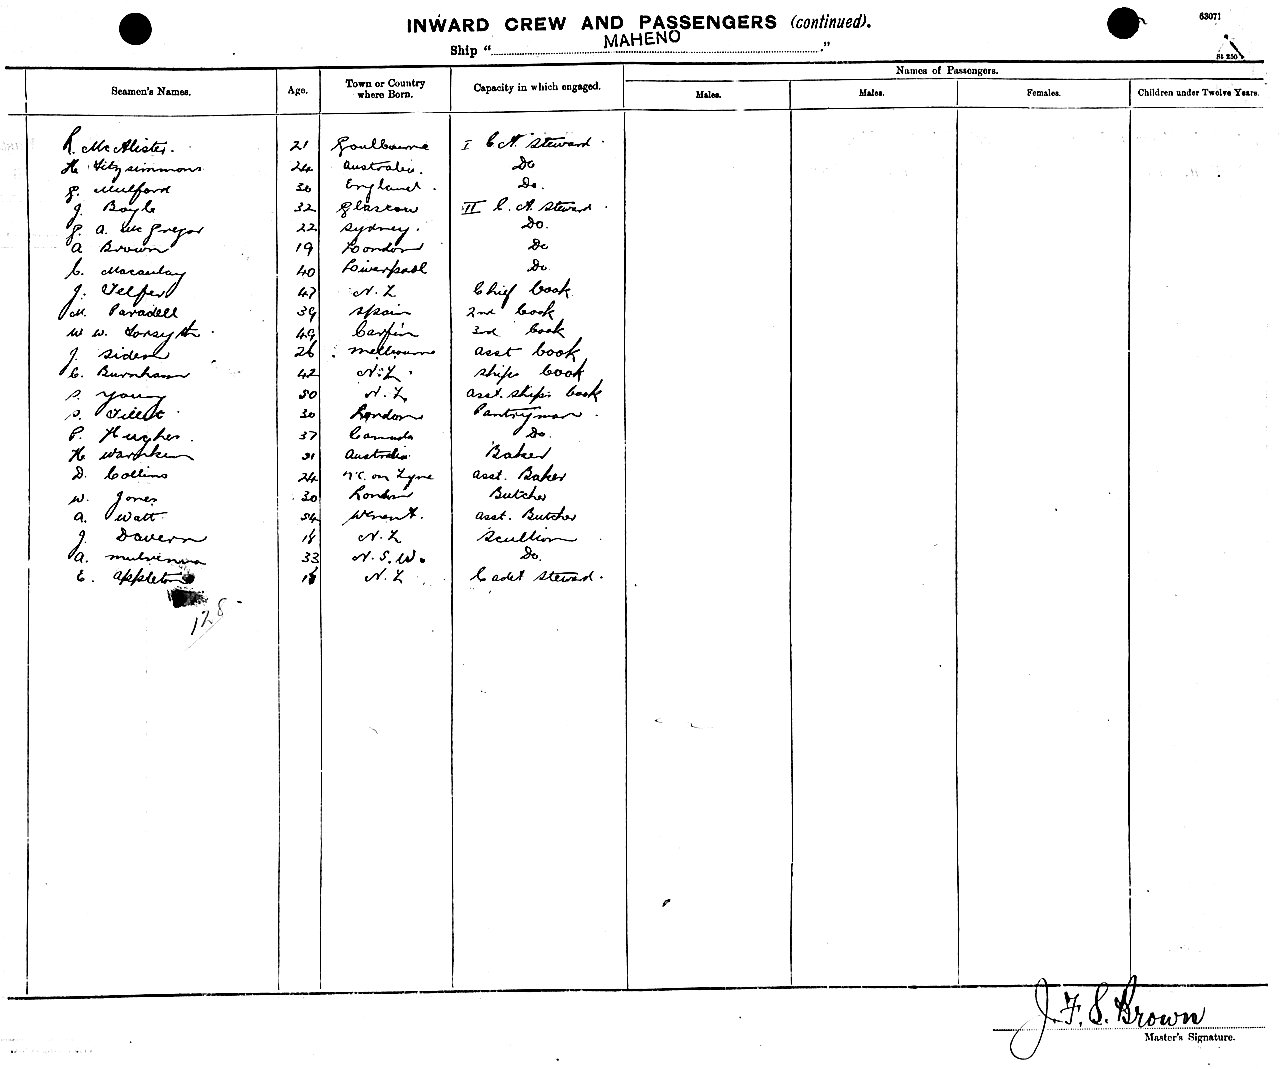 INWARD CREW AND PASSENGERS (continued).
63071
Ship "MAHENO."
Seamen's Names. Age. Town or Country where Born. Capacity in which engaged. Names of Passengers.
Males. Males. Females. Children under Twelve Years.
R. McAlister. 21 Goulbourne I C A Steward.
H Fitzsimmons 24 Australia. Do
G. Mulford 30 England. Do.
J. Boyle 32 Glascow II C. A. Steward.
G. A. McGregor 22 Sydney. Do.
A Brown 19 London Do
C. Macaulay 40 Liverpool Do.
J. Telfer 47 N. Z Chief Cook
M. Paradell 39 Spain 2nd Cook
W W. Forsyth. 49 Carfin 3rd Cook
J. Siden 26 Melbourne Asst Cook
C. Burnham 42 N. Z. Ships Cook
S. Young 50 N. Z Asst. Ships Cook
S. 30 London Pantryman.
P. Hughes. 37 Canada Do.
H 31 Australia Baker
D. Collins 24 N.C. on Tyne Asst. Baker
W. Jones 30 London Butcher
A. Watt. 54 Asst. Butcher
J. Davern 18 N. Z Scullion
A. 33 N. S. W. Do.
E. Appleton N. Z Cadet Steward.
128
J. F. S. Brown
Master's Signature.